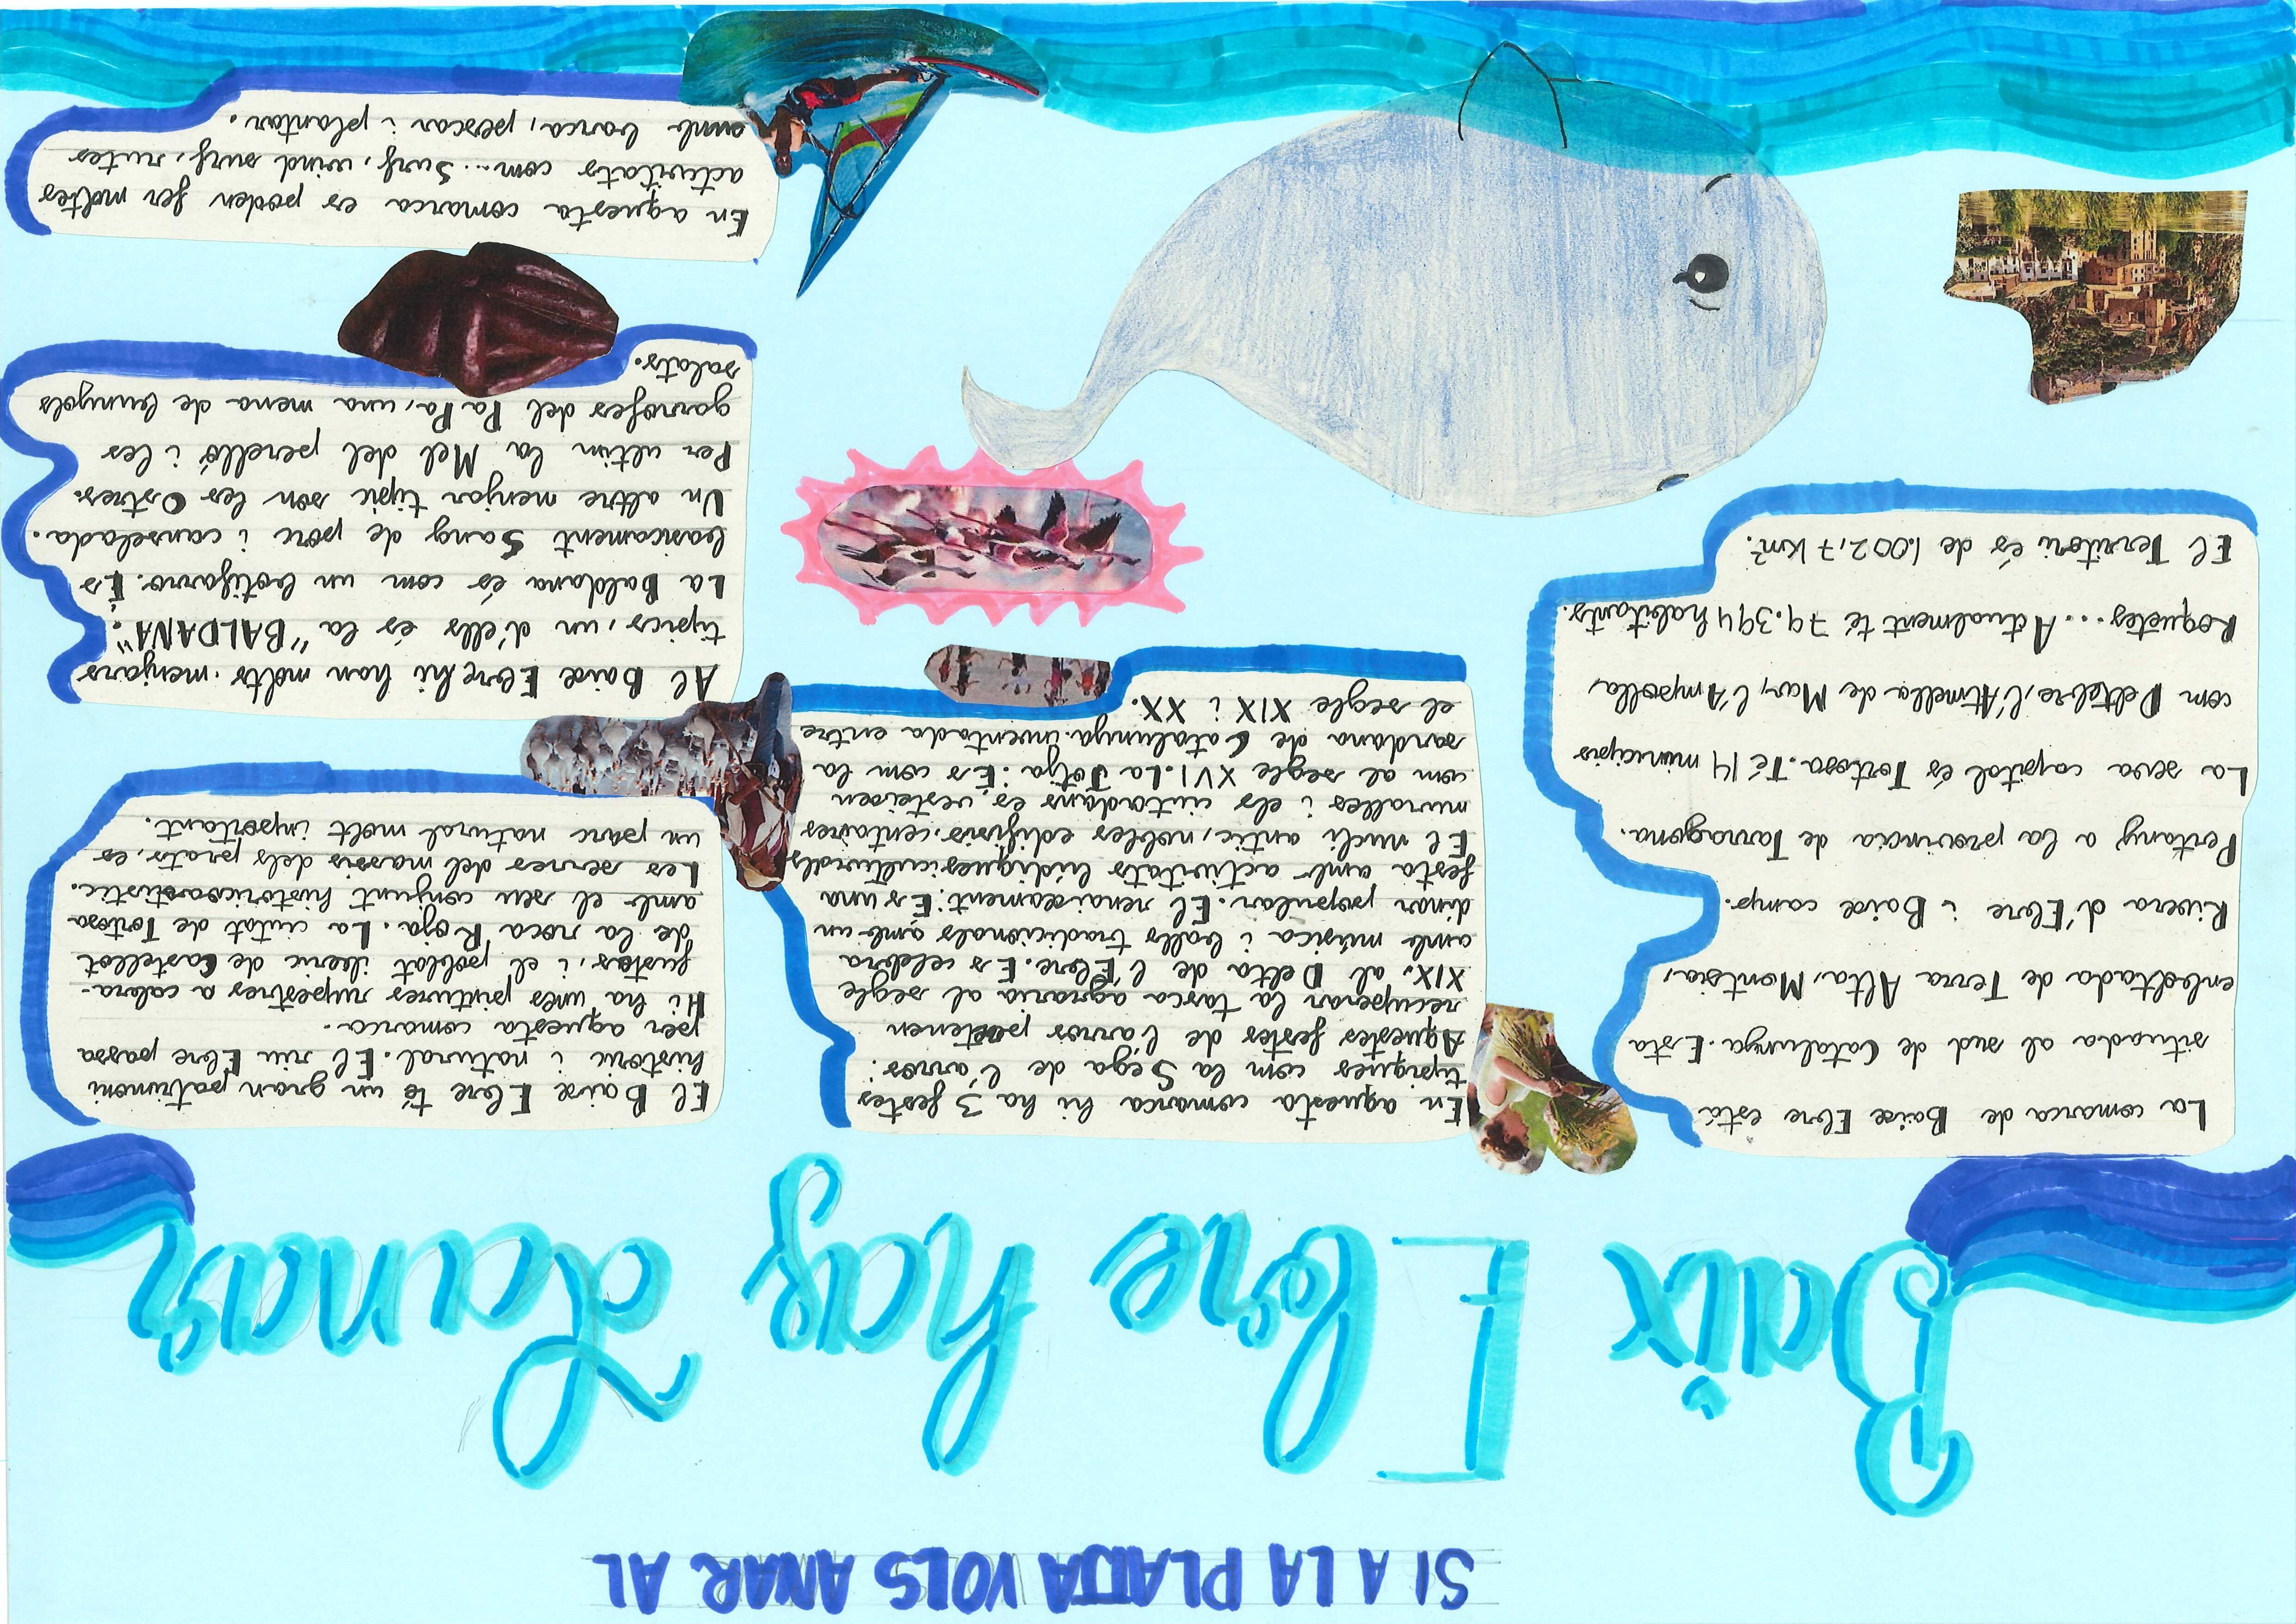 SI A LA PLATJA VOLS ANAR AL
Baix Ebre has d'anar
La comarca de Baix Ebre està
situada al sud de Catalunya. Esta
enboltada de Terra Alta, Montsia,
Rivera d'Ebre i Baix camp.
Pertany a la provincia de Tarragona.
La seva capital és Tortosa. Té 14 municipis
com Deltebre, l'Atmella de Mar, l'Ampolla,
Roquetes... Actualment té 79.394 habitants.
El Territori és de 1.002,7 km².
En aquesta comarca hi ha 3 festes
tipiques com la Sega de l'arros:
Aquestes festes de l'arros pretenen
recuperar la tasca agraria al segle
XIX. al Delta de l'Ebre. Es celebra
amb música i balls tradicionals amb un
dinar popular. El renaixament: És una
festa amb activitats lúdiques i culturals
El nucli antic, nobles edifisis, centaires
muralles i els ciutadans es vesteixen
com al segle XVI. La Jotja: És com la
sardana de Catalunya inventada entre
el segle XIX i XX.
El Baix Ebre té un gran patrimoni
històric i natural. El riu Ebre passa
per aquesta comarca.
Hi ha unes pintures rupestres a cabra-
fustas, i el poblat iberic de Castellot
de la roca Roja. La ciutat de Tortosa
amb el seu conjunt historicoartistic.
Les serres del massis dels prats, es
un parc natural molt important.
Al Baix Ebre hi han molts menjars
tipics, un d'ells és la "BALDANA".
La Baldana és com un botifarro. És
basicament Sang de porc i canselada.
Un altre menjar tipic son les Ostres.
Per ultim la Mel del perelló i les
garrofes del PaPa, una mena de bunyols
salats.
En aquesta comarca es poden fer moltes
activitats com... Surf, wind surf, rutes
amb barca, pescar i plantar.